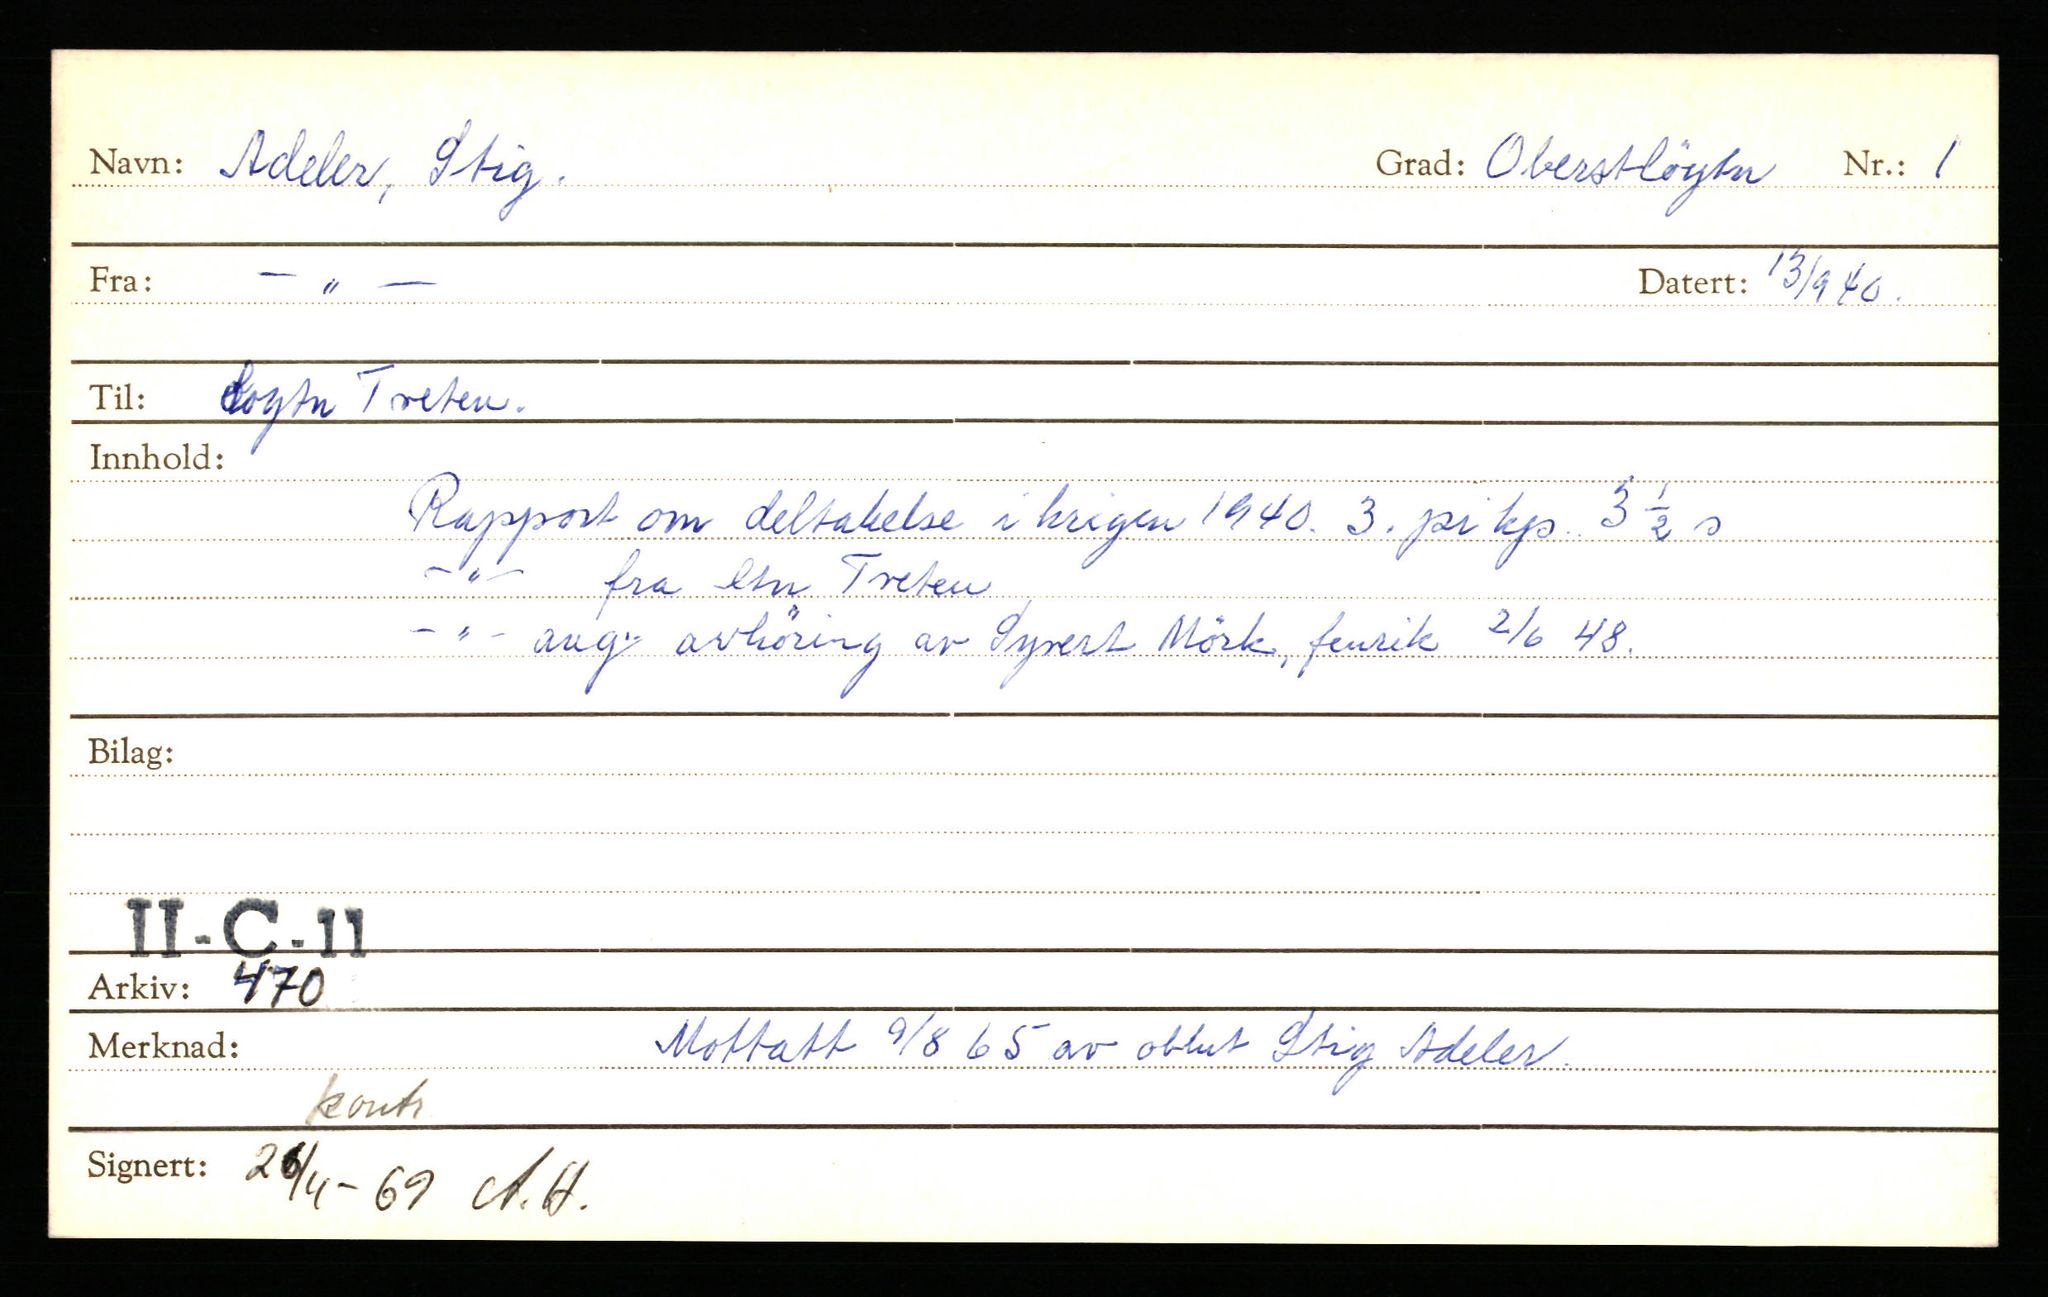 Navn: Adeler, Stig. Grad: Oberstlöytn Nr.: 1
Fra: — " — Datert: 13/9 40.
Til: Löytn Treten.
Innhold:
Rapport om deltakelse i krigen 1940. 3. pi kp. 3 1/2 s
- " - fra ltn Treten
- " - ang. avhöring av Syvert Mörk, fenrik 2/6 48.
Bilag:
II-C-11
Arkiv: 470
Merknad: Mottatt 9/8 65 av obltnt Stig Adeler.
kontr
Signert: 26/4-69 A.H.